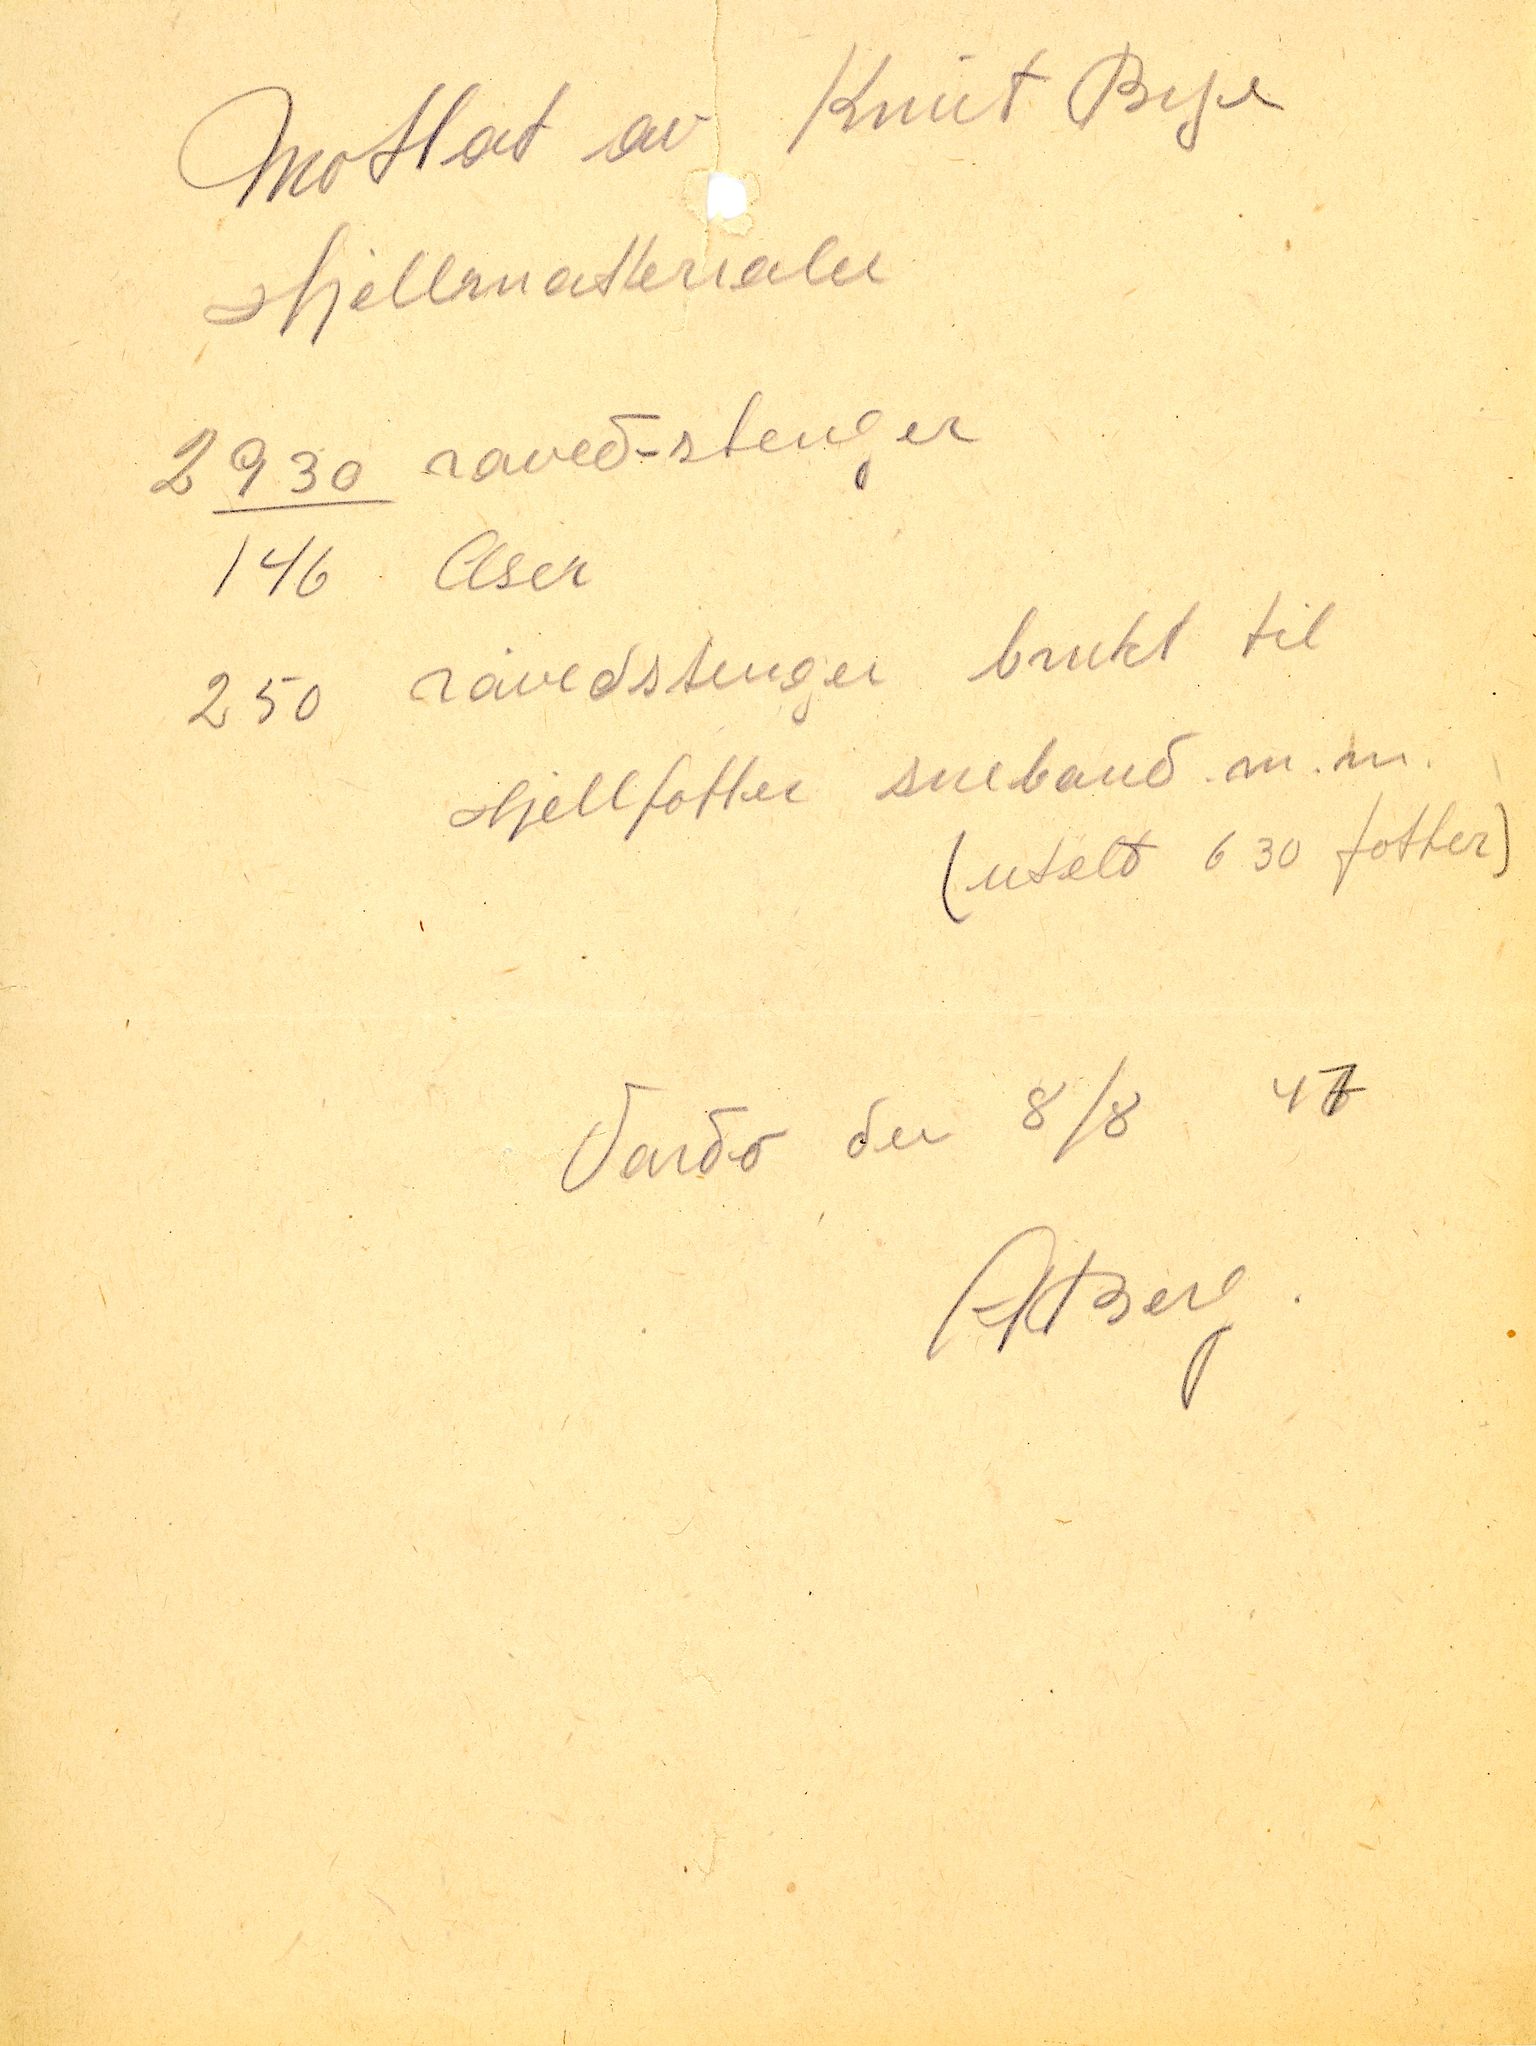 Mottat av Knut Bye
hjellmatterialer
2930 raved-stenger
146 Aser
250 råvedstenger brukt til
hjellfotter sneband. m.m.
(utelt 630 fotter)
Vardø den 8/8 47
Berg.